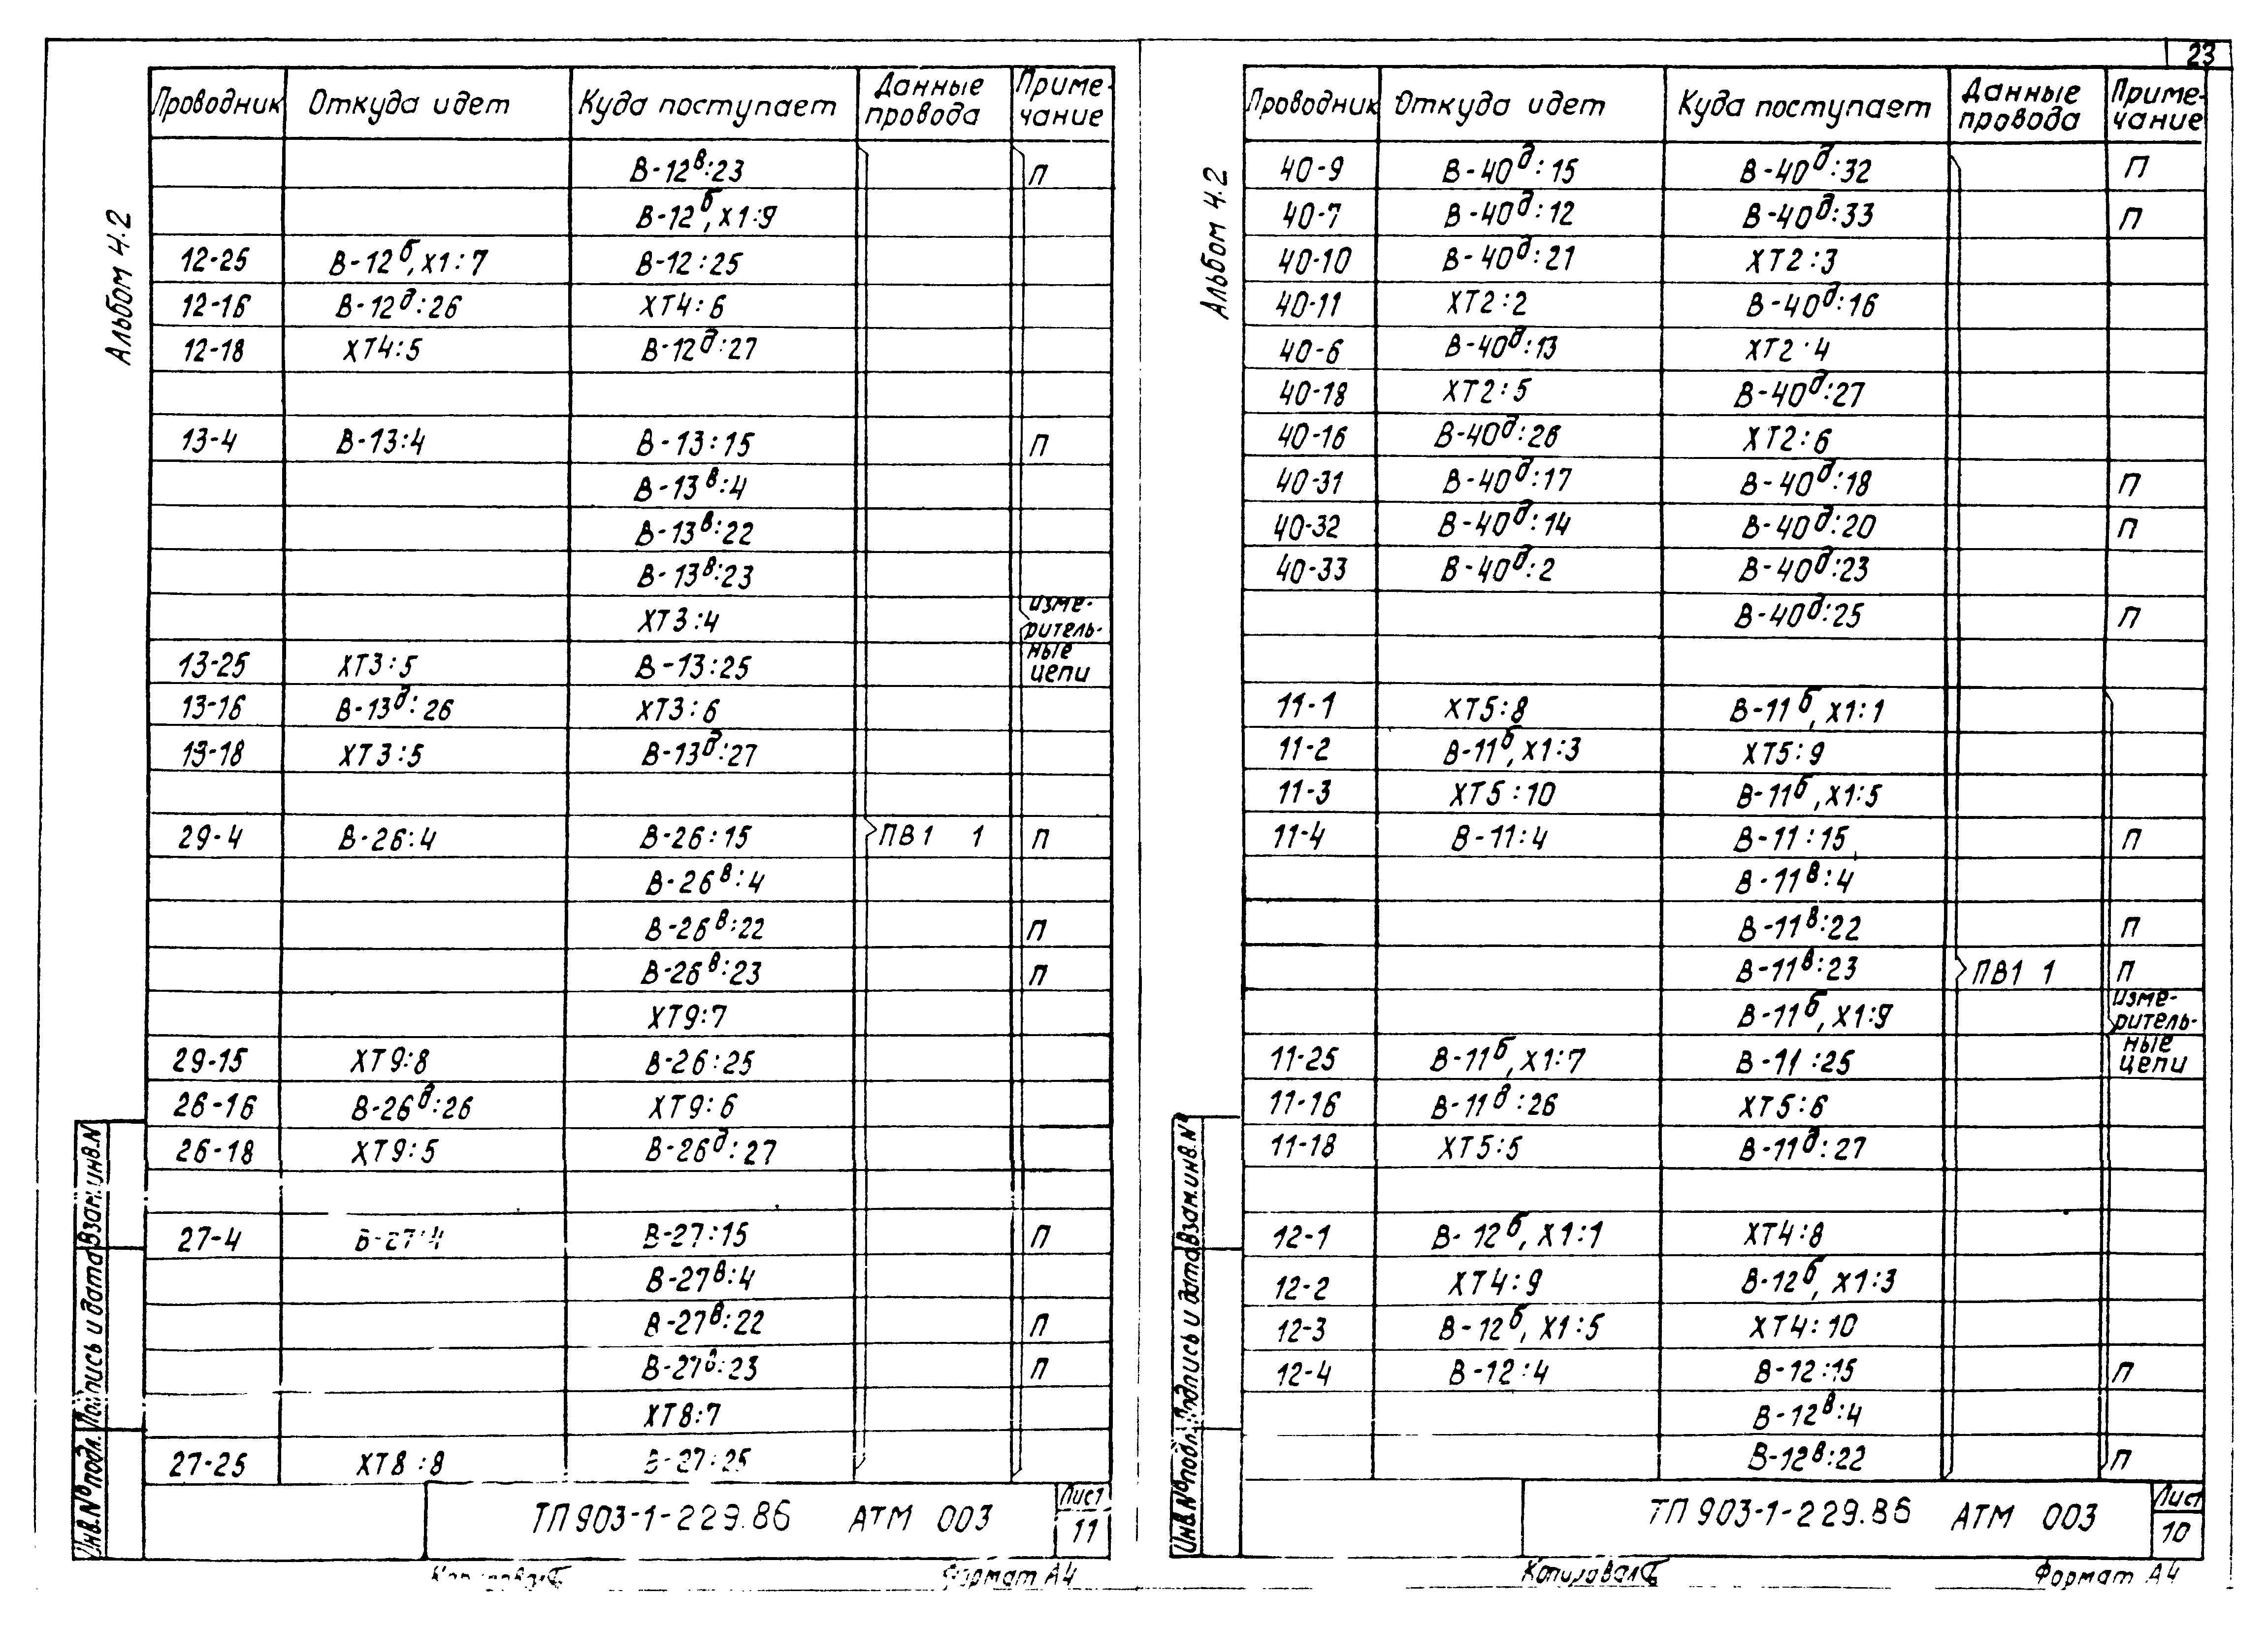 23
Альбом 4.2
Проводник Откуда идет Куда поступает Данные провода Примечание
В-12ᵇ:23 П
В-12ᵟ, Х1:9
12-25 В-12ᵟ, Х1:7 В-12:25
12-16 В-12ᵈ:26 ХТ4:6
12-18 ХТ4:5 В-12ᵈ:27
13-4 В-13:4 В-13:15 П
В-13ᵇ:4
В-13ᵇ:22
В-13ᵇ:23
ХТ3:4 измеритель-
13-25 ХТ3:5 В-13:25 ные цепи
13-16 В-13ᵈ:26 ХТ3:6
13-18 ХТ3:5 В-13ᵈ:27
29-4 В-26:4 В-26:15 ПВ1 1 П
В-26ᵇ:4
В-26ᵇ:22 П
В-26ᵇ:23 П
ХТ9:7
29-15 ХТ9:8 В-26:25
26-16 В-26ᵈ:26 ХТ9:6
26-18 ХТ9:5 В-26ᵈ:27
27-4 В-27:4 В-27:15 П
В-27ᵇ:4
В-27ᵇ:22 П
В-27ᵇ:23 П
ХТ8:7
27-25 ХТ8:8 В-27:25
Взам.инв.N
Подпись и дата
Инв.№ подл.
ТП 903-1-229.86 АТМ 003
Лист
11
Формат А4
Альбом 4.2
Проводник Откуда идет Куда поступает Данные провода Примечание
40-9 В-40ᵈ:15 В-40ᵈ:32 П
40-7 В-40ᵈ:12 В-40ᵈ:33 П
40-10 В-40ᵈ:21 ХТ2:3
40-11 ХТ2:2 В-40ᵈ:16
40-6 В-40ᵈ:13 ХТ2:4
40-18 ХТ2:5 В-40ᵈ:27
40-16 В-40ᵈ:26 ХТ2:6
40-31 В-40ᵈ:17 В-40ᵈ:18 П
40-32 В-40ᵈ:14 В-40ᵈ:20 П
40-33 В-40ᵈ:2 В-40ᵈ:23
В-40ᵈ:25 П
11-1 ХТ5:8 В-11ᵟ, Х1:1
11-2 В-11ᵟ, Х1:3 ХТ5:9
11-3 ХТ5:10 В-11ᵟ, Х1:5
11-4 В-11:4 В-11:15 П
В-11ᵇ:4
В-11ᵇ:22 П
В-11ᵇ:23 ПВ1 1 П
В-11ᵟ, Х1:9 измеритель-
11-25 В-11ᵟ, Х1:7 В-11:25 ные цепи
11-16 В-11ᵈ:26 ХТ5:6
11-18 ХТ5:5 В-11ᵈ:27
12-1 В-12ᵟ, Х1:1 ХТ4:8
12-2 ХТ4:9 В-12ᵟ, Х1:3
12-3 В-12ᵟ, Х1:5 ХТ4:10
12-4 В-12:4 В-12:15 П
В-12ᵇ:4
В-12ᵇ:22 П
Взам.инв.N
Подпись и дата
Инв.№ подл.
ТП 903-1-229.86 АТМ 003
Лист
10
Копировал
Формат А4